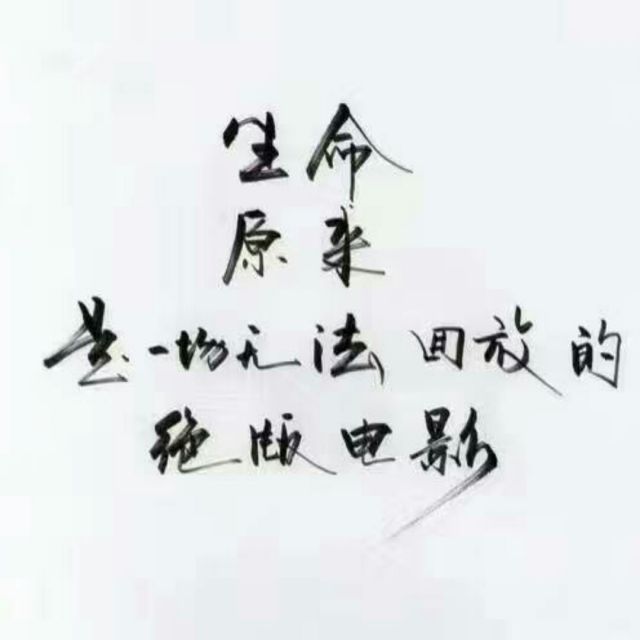 生命
原来
是一场无法回放的
绝版电影